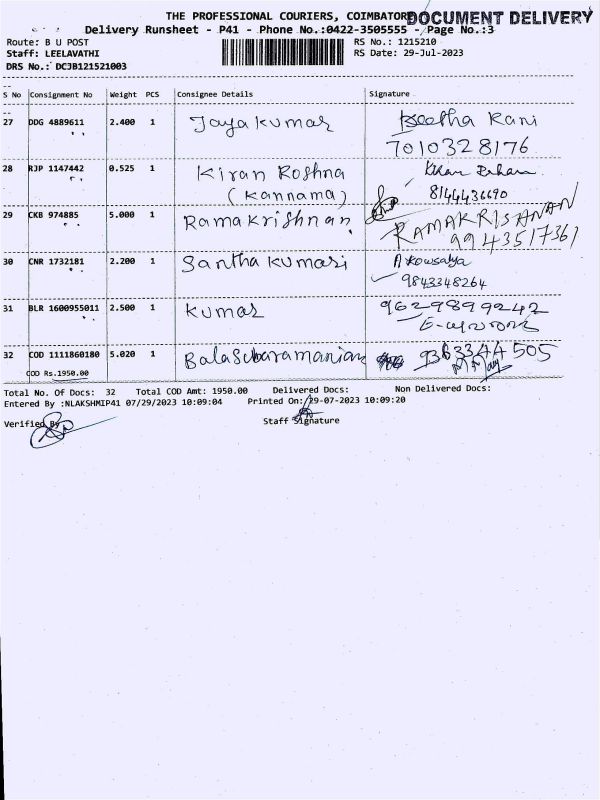 THE PROFESSIONAL COURIERS, COIMBATORE
DOCUMENT DELIVERY
Delivery Runsheet - P41 - Phone No.:0422-3505555 - Page No.:3
Route: B U POST RS No.: 1215210
Staff: LEELAVATHI RS Date: 29-Jul-2023
DRS No.: DCJB121521003
S No Consignment No Weight PCS Consignee Details Signature
27 DDG 4889611 2.400 1 Jayakumar Geetha Rani
7010328176
28 RJP 1147442 0.525 1 Kiran Roshna
(Kannama) 8144436690
29 CKB 974885 5.000 1 Ramakrishnan RAMAKRISHNAN
9943517361
30 CNR 1732181 2.200 1 Santha Kumari A Kowsalya
9843348264
31 BLR 1600955011 2.500 1 Kumar 9629899242
32 COD 1111860180 5.020 1 Balasubaramanian 9363344505
COD Rs.1950.00
Total No. Of Docs: 32 Total COD Amt: 1950.00 Delivered Docs: Non Delivered Docs:
Entered By :NLAKSHMIP41 07/29/2023 10:09:04 Printed On:29-07-2023 10:09:20
Verified By Staff Signature